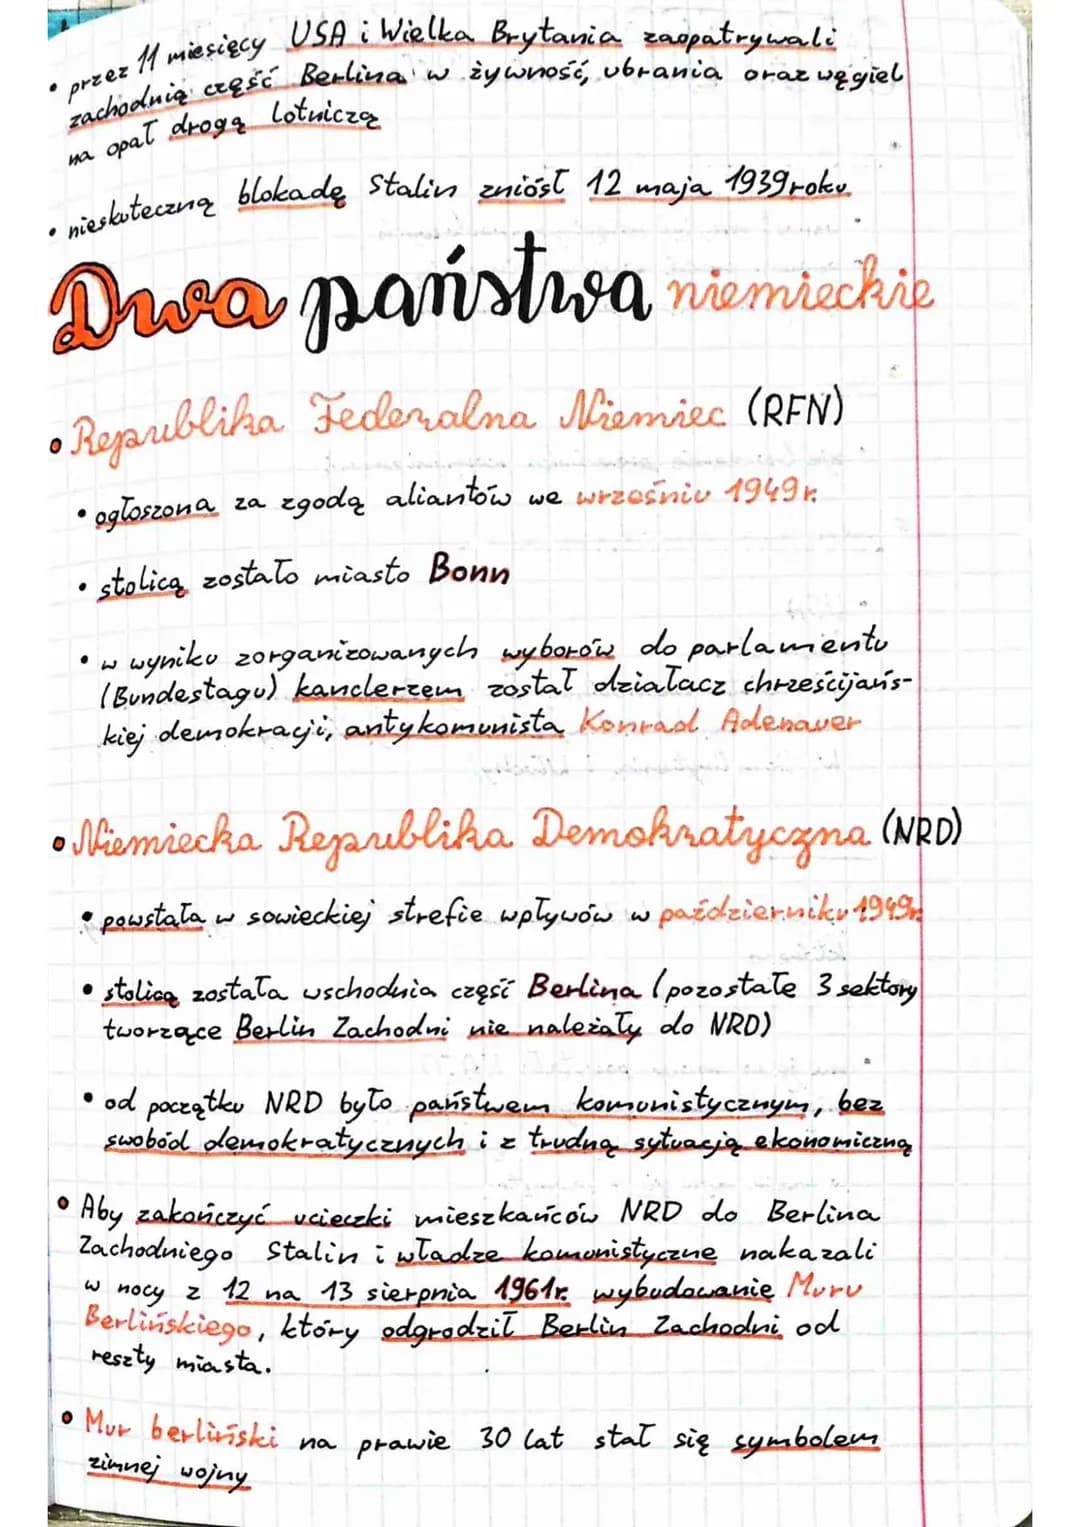 • przez 11 miesięcy USA i Wielka Brytania zaopatrywali
zachodnią część Berlina w żywność, ubrania oraz węgiel
na opał drogą lotniczą
• nieskuteczną blokadę Stalin zniósł 12 maja 1939roku
Dwa państwa niemieckie
• Republika Federalna Niemiec (RFN)
• ogłoszona za zgodą aliantów we wrześniu 1949r.
• stolicą zostało miasto Bonn
• w wyniku zorganizowanych wyborów do parlamentu
(Bundestagu) kanclerzem został działacz chrześcijańs-
kiej demokracji, antykomunista Konrad Adenauer
• Niemiecka Republika Demokratyczna (NRD)
• powstała w sowieckiej strefie wpływów w październiku 1949r.
• stolicą została wschodnia część Berlina (pozostałe 3 sektory
tworzące Berlin Zachodni nie należały do NRD)
• od początku NRD było państwem komunistycznym, bez
swobód demokratycznych i z trudną sytuacją ekonomiczną
• Aby zakończyć ucieczki mieszkańców NRD do Berlina
Zachodniego Stalin i władze komunistyczne nakazali
w nocy z 12 na 13 sierpnia 1961r. wybudowanie Muru
Berlińskiego, który odgrodził Berlin Zachodni od
reszty miasta.
• Mur berliński na prawie 30 lat stał się symbolem
zimnej wojny